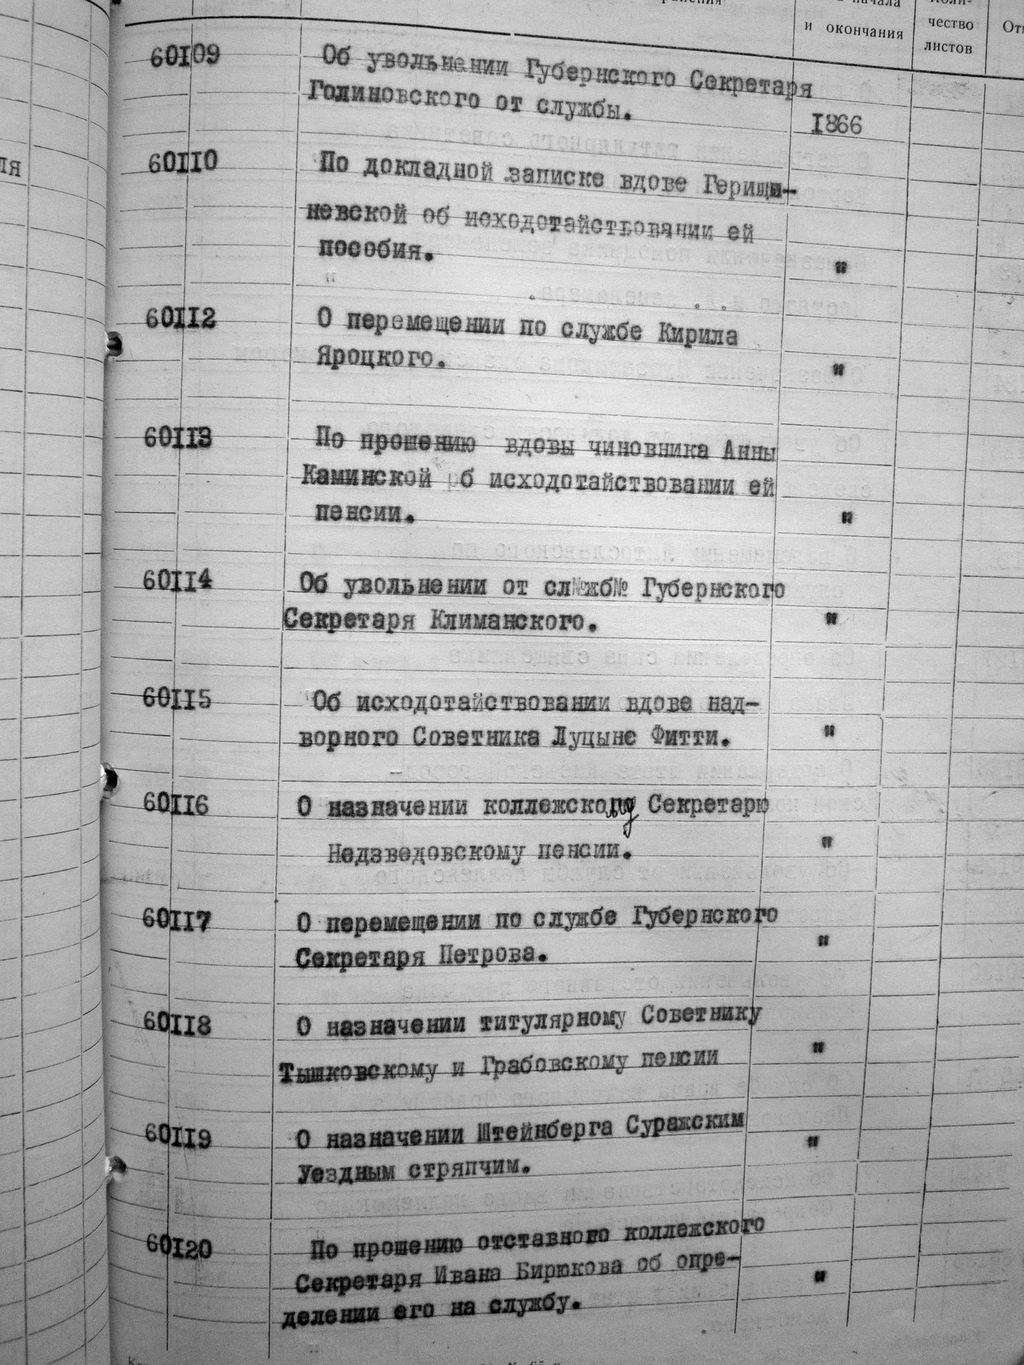 и окончания
чество
листов
60109 Об увольнении Губернского Секретаря
Голиновского от службы.
1866
60110 По докладной записке вдове Герищи-
невской об исходотайствовании ей
пособия. "
60112 О перемещении по службе Кирила
Яроцкого. "
60113 По прошению вдовы чиновника Анны
Каминской об исходотайствовании ей
пенсии. "
60114 Об увольнении от сл№жб№ Губернского
Секретаря Климанского. "
60115 Об исходотайствовании вдове над-
ворного Советника Луцыне Фитти. "
60116 О назначении коллежскому Секретарю
Недзведовскому пенсии. "
60117 О перемещении по службе Губернского
Секретаря Петрова. "
60118 О назначении титулярному Советнику
Тышковскому и Грабовскому пенсии "
60119 О назначении Штейнберга Суражским
Уездным стряпчим. "
60120 По прошению отставного коллежского
Секретаря Ивана Бирюкова об опре-
делении его на службу. "